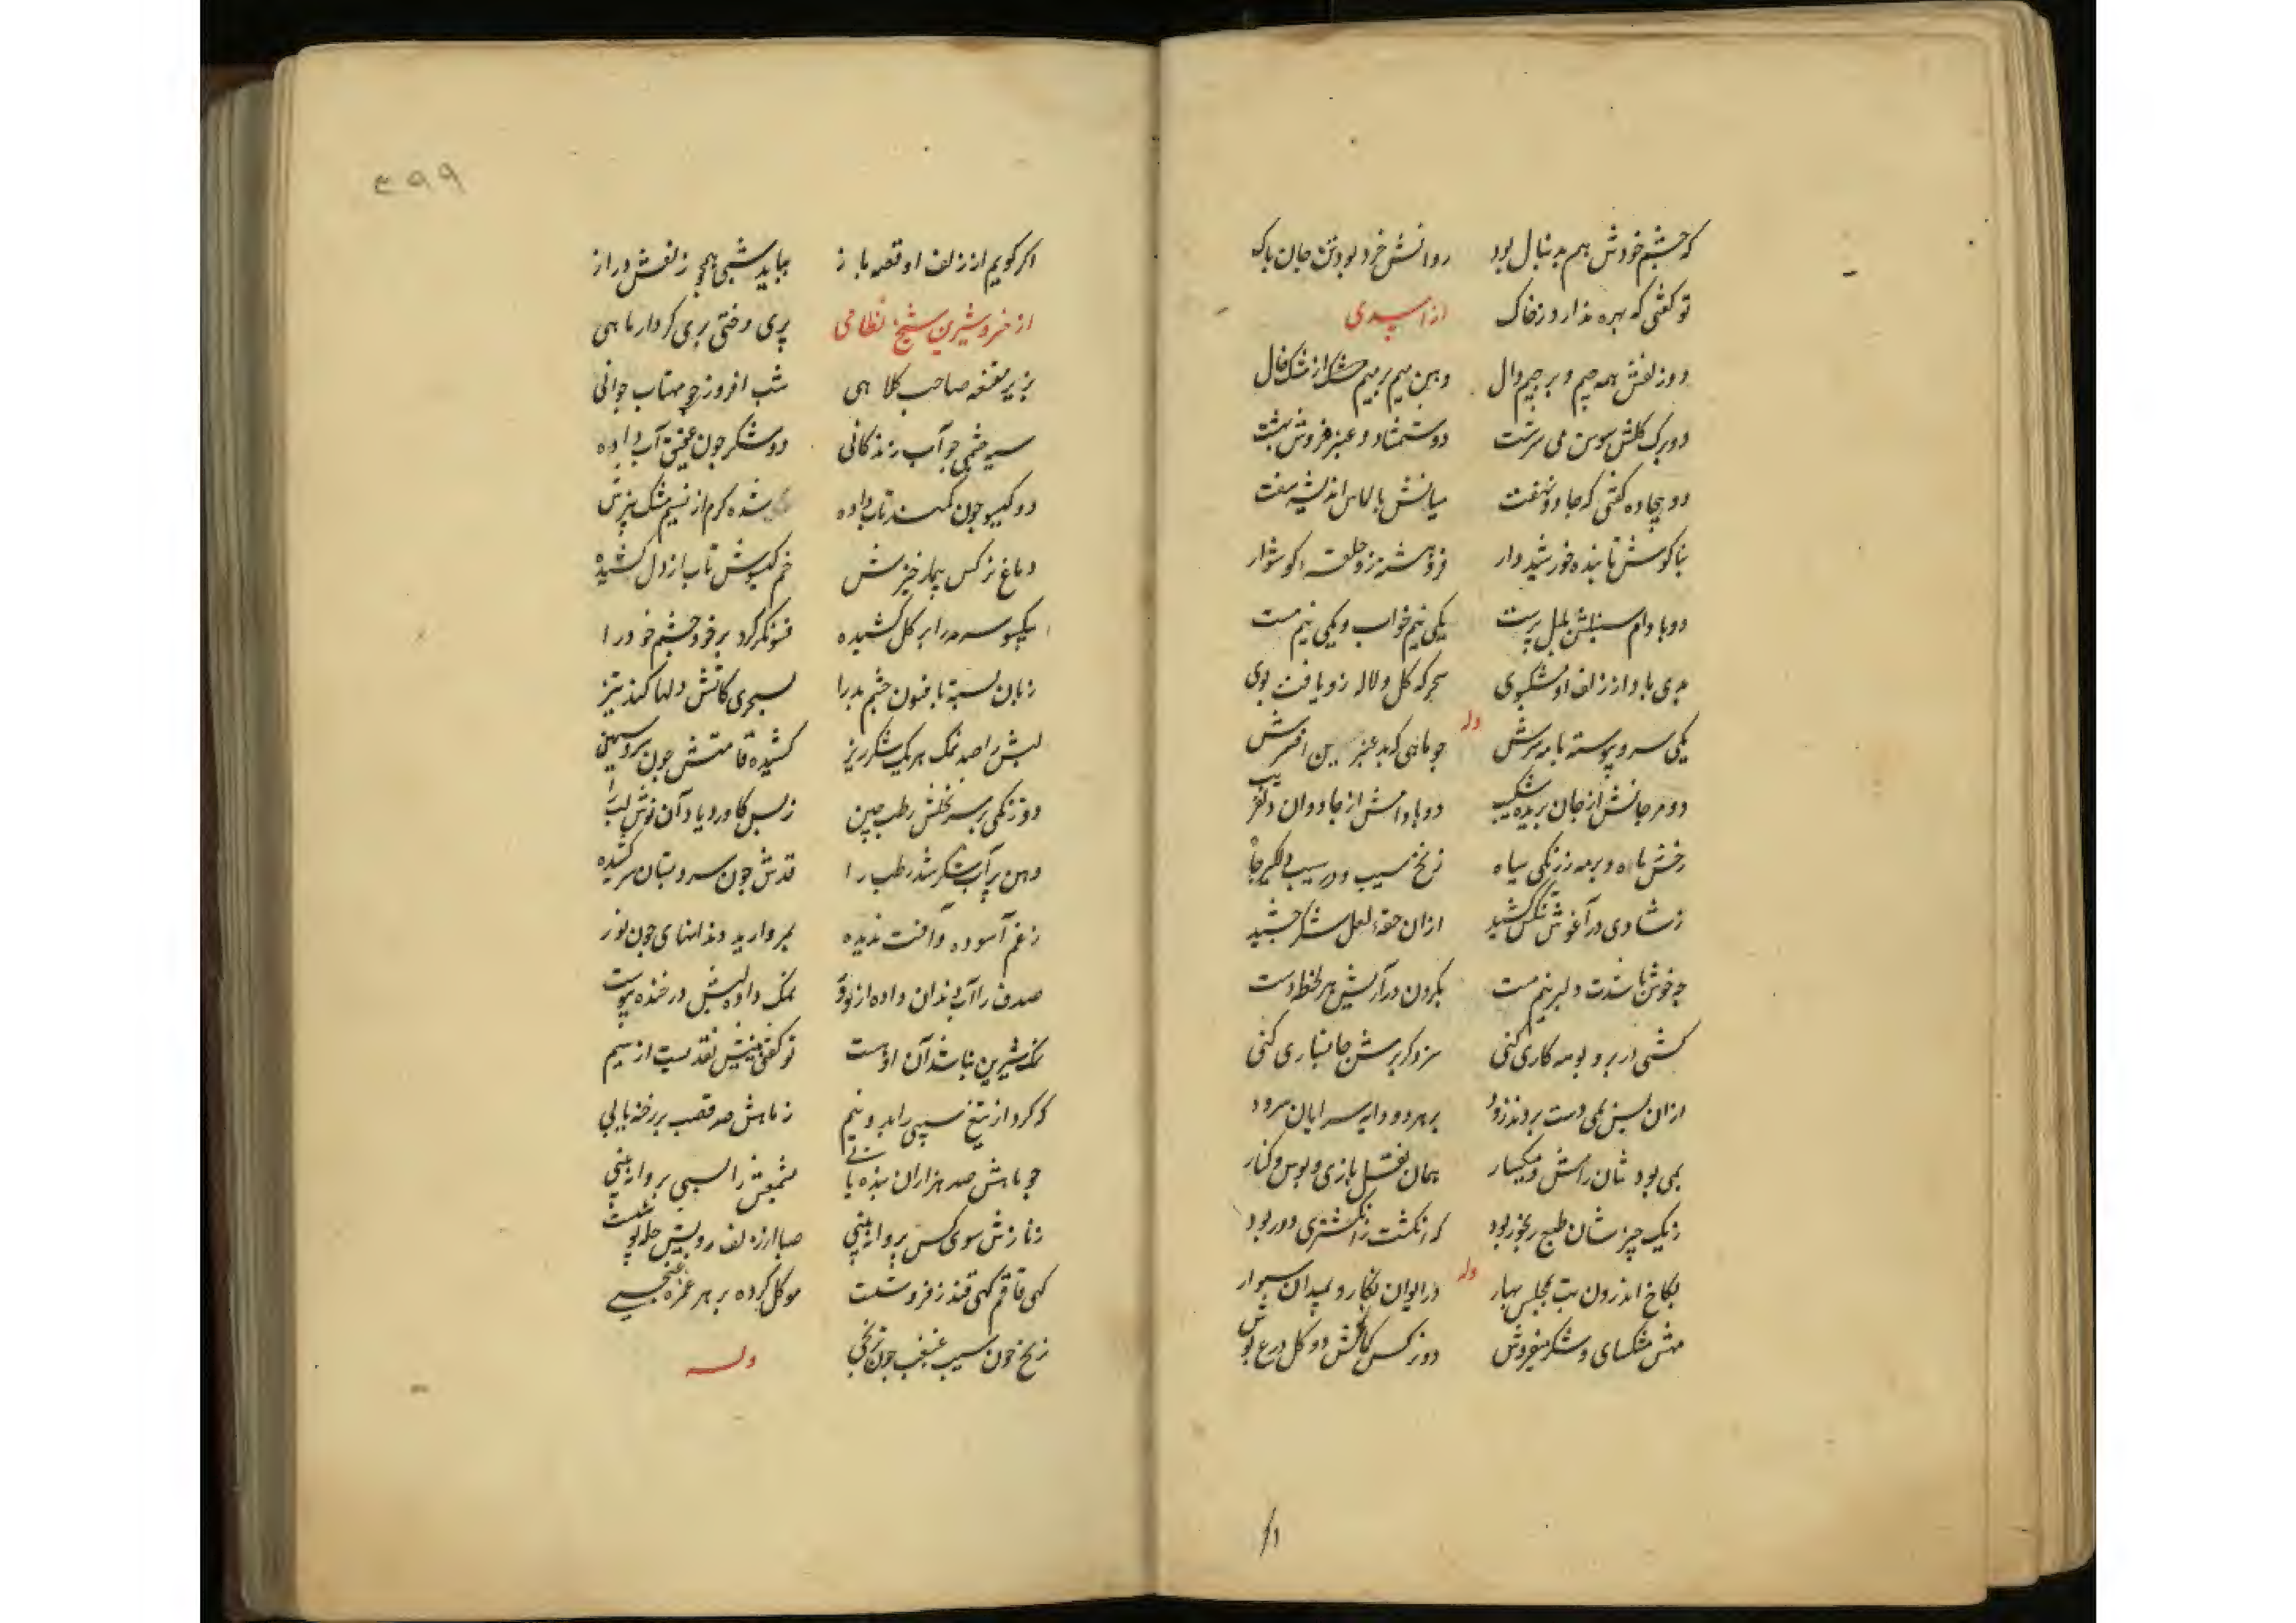 که چشم خودش هم بدنبال بود روانش خرد بود تن جان پاک
تو گفتی که بهره ندارد ز خاک از اسدی
دو زلفش همه جیم و بر جیم دال دهن میم و بر میم از مشک خال
دو برک کلش سوسن می سرشت دو شمشاد عنبر فروش بهشت
دو بیجاده گفتی که جادو نهفت میانش بالماس اندیشه سفت
بناکوش تابنده خورشید وار فروهشته زو حلقه گوشوار
دو بادام یکی نیم خواب و یکی نیم مست
بدی باد از زلف او مشکبوی سحرکه کل و لاله زو یافت بوی
وله
یکی سرو پیوسته با مه سرش چو ماهی که بد عنبرین افسرش
دو مرجانش از جان بریده شکیب دو بادامش از جادوان دلفریب
رخش ماه و بر مه ز زنگی سیاه زنخ سیب و در سیب
ز شادی در آغوش تنگش کشید از آن حقه لعل شکر چشید
چه خوش باشدت دلبر نیم مست بگردن در آریش هر لحظه دست
کشی در بر و بوسه کاری کنی سزد کر برش جانسپاری کنی
از آن پس بمی دست بردند زود
همی بود شان رامش و میکسار همان نقل بازی و بوس و کنار
ز یک چیز شان طبع رنجور بود که انکشت از انکشتری دور بود
وله
بکاخ اندرون بت بمجلس بهار در ایوان نکار و بمیدان سوار
مهش مشکسای و شکر میفروش دو نرکس کمانکش دو کل درع پوش
۳۹۹
اکر کویم از زلف او قصه باز بباید شبی همچو زلفش دراز
از خسرو شیرین شیخ نظامی پری دختی پری کردار ماهی
بزیر مقنعه صاحب کلاهی شب افروزی چو مهتاب جوانی
سیه چشمی چو آب زندکانی دو شکر چون عقیق آب داده
دو کیسو چون کمند تاب داده شده کرم از نسیم مشک بیزش
دماغ نرکس بیمار خیزش خم کیسوش تاب از دل کشیده
بکیسو سبزه را بر کل کشیده فسونکر کرد بر خود چشم خود را
زبان بسته با فسون چشم بد را بسحری کاتش دلها کند تیز
لبش را صد نمک هر یک شکر ریز کشیده قامتش چون سرو سیمین
دو زنکی بر سر نخلش رطب چین ز بس کاورد یاد آن نوش لب را
دهن پر آب شکر شد رطب را قدش چون سرو بستان سر کشیده
ز غم آسوده و آفت ندیده بمروارید دندانهای چون نور
صدف را آب دندان داده از دور نمک دارد لبش در خنده پیوست
نمک شیرین نباشد آن اوست تو گفتی بینیش تیغیست از سیم
که کرد از تیغ سیبی را بدو نیم ز ماهش صد قصب را رخنه یابی
چو ماهش صد هزاران بنده یابی بشمعش بر بسی پروانه بینی
ز نازش سوی کس پروا نه بینی صبا از زلف و رویش حله پوشست
کهی قاقم کهی قندز فروشست موکل کرده بر هر غمزه غنجی
زنخ چون سیب غبغب چون ترنجی وله